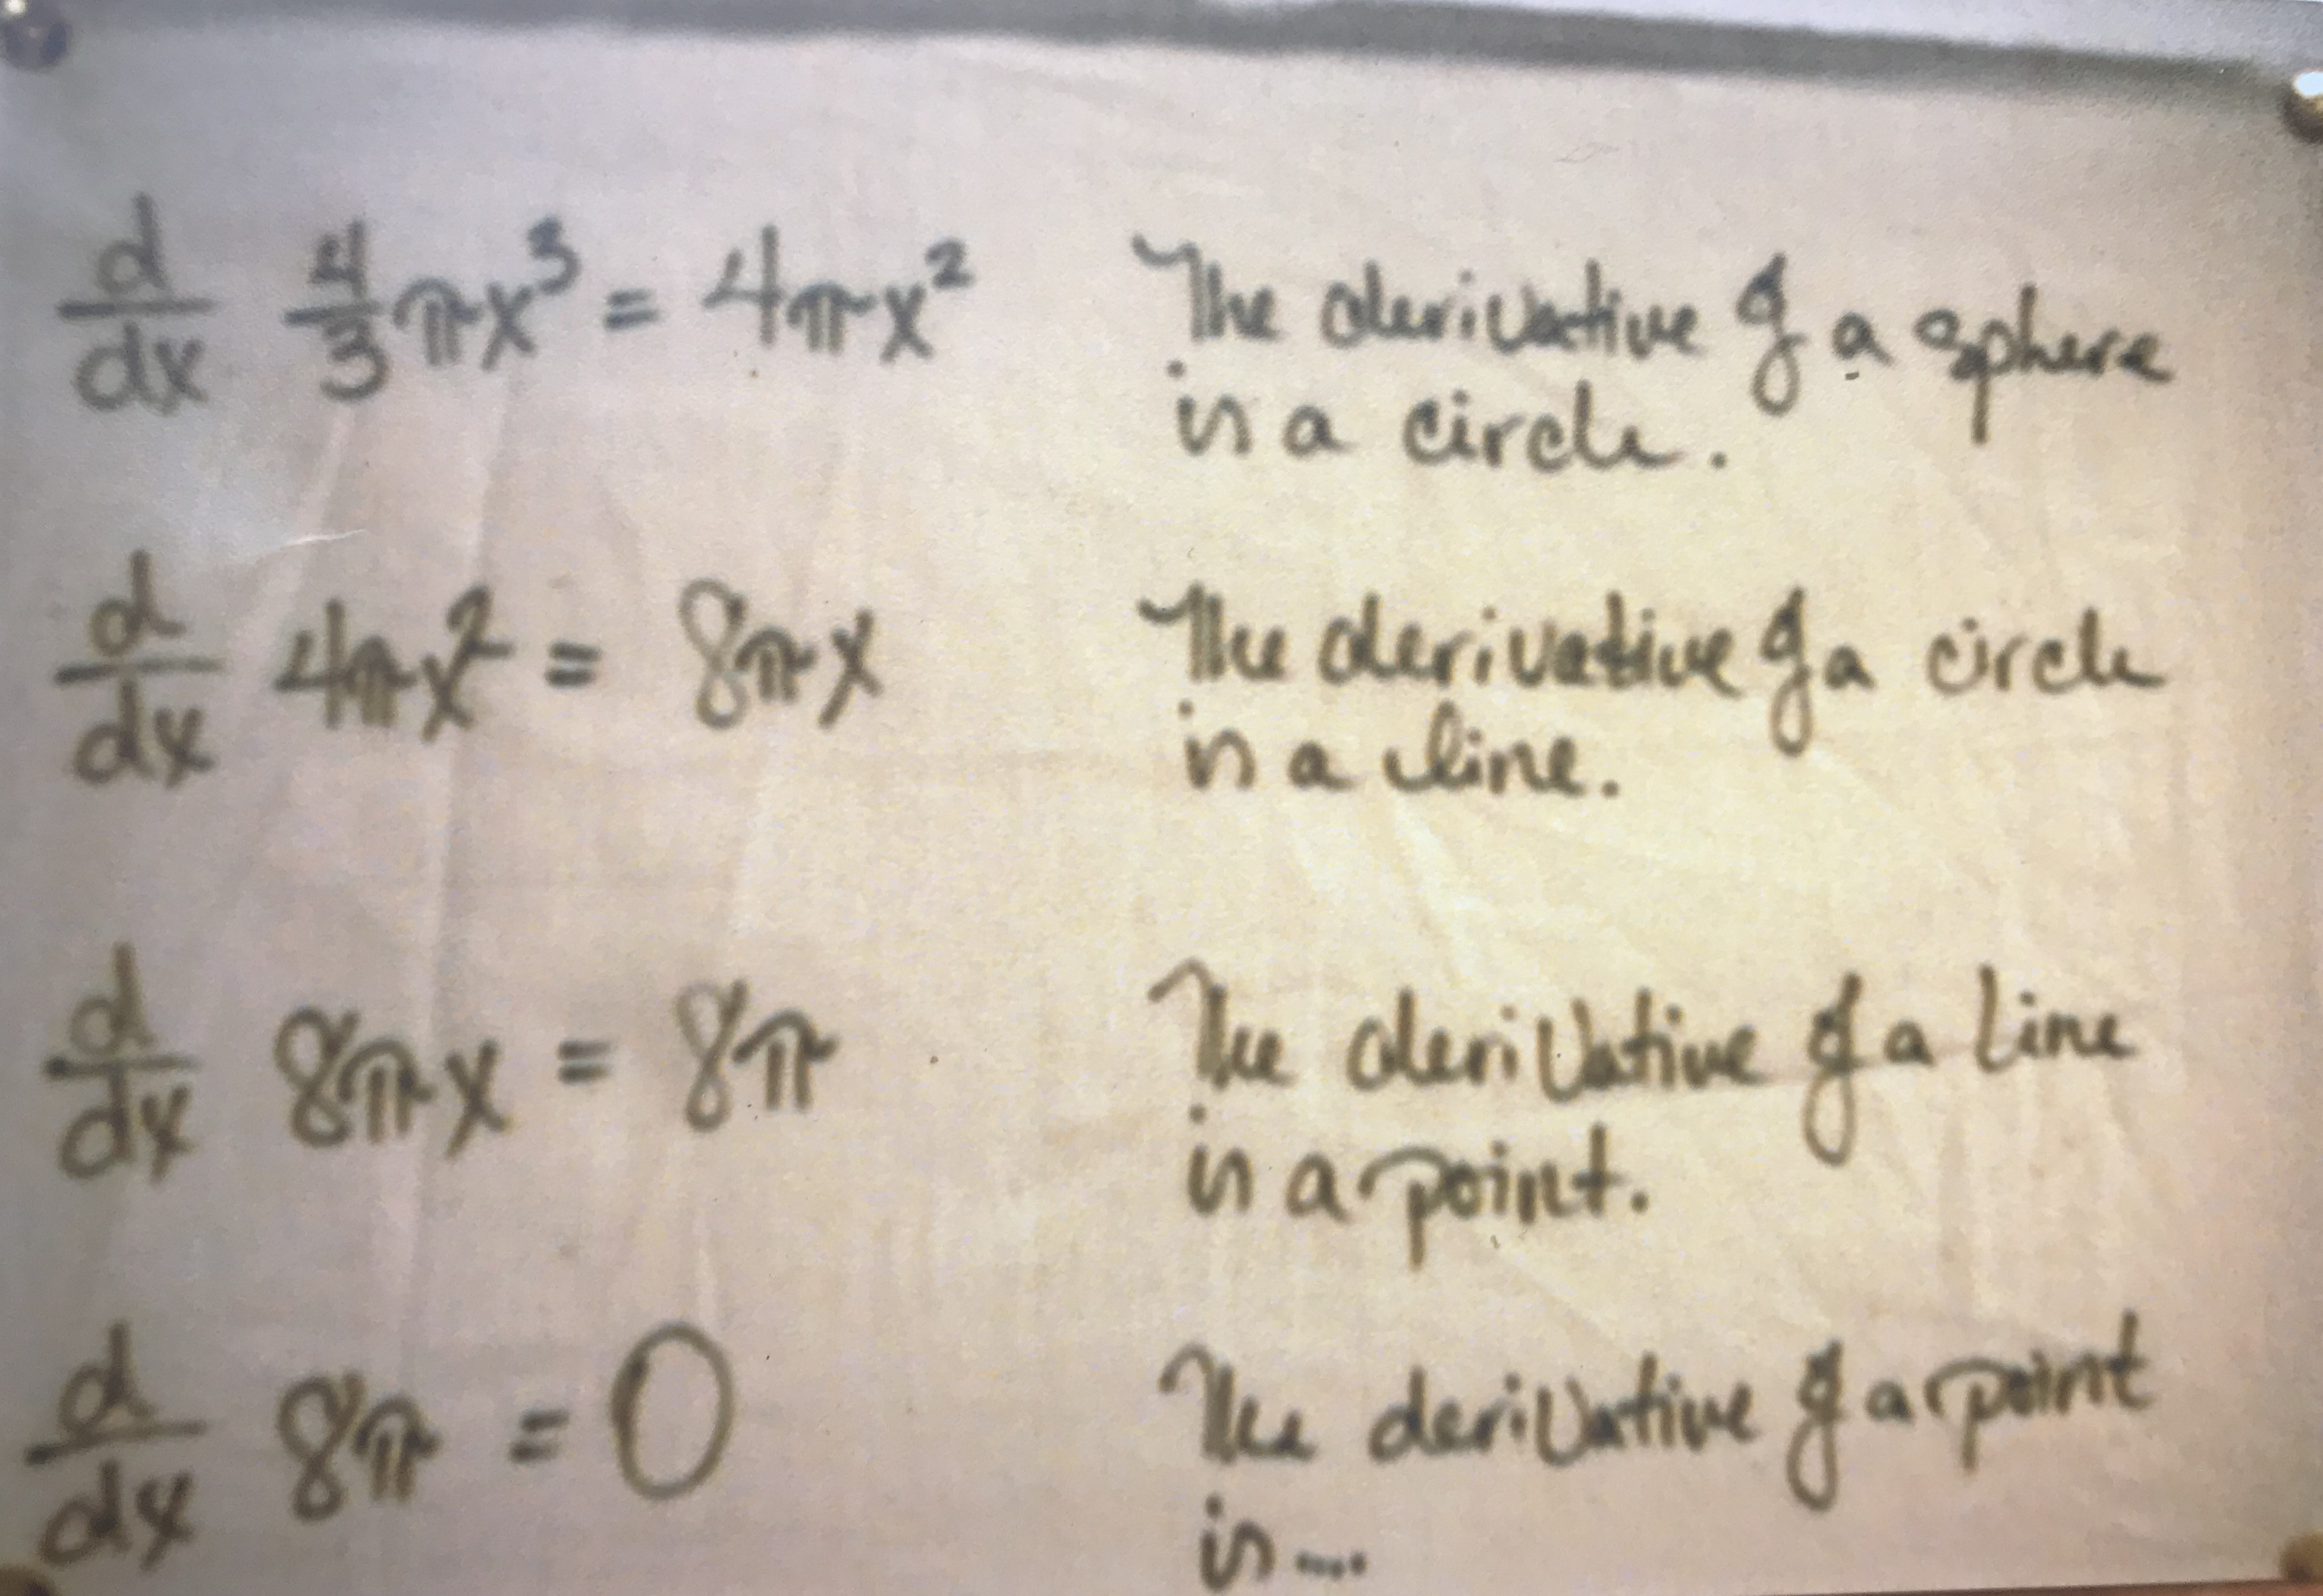 d/dx 4/3 πx³ = 4πx² The derivative of a sphere
is a circle.
d/dx 4πx² = 8πx The derivative of a circle
is a line.
d/dx 8πx = 8π The derivative of a line
is a point.
d/dx 8π = 0 The derivative of a point
is ....